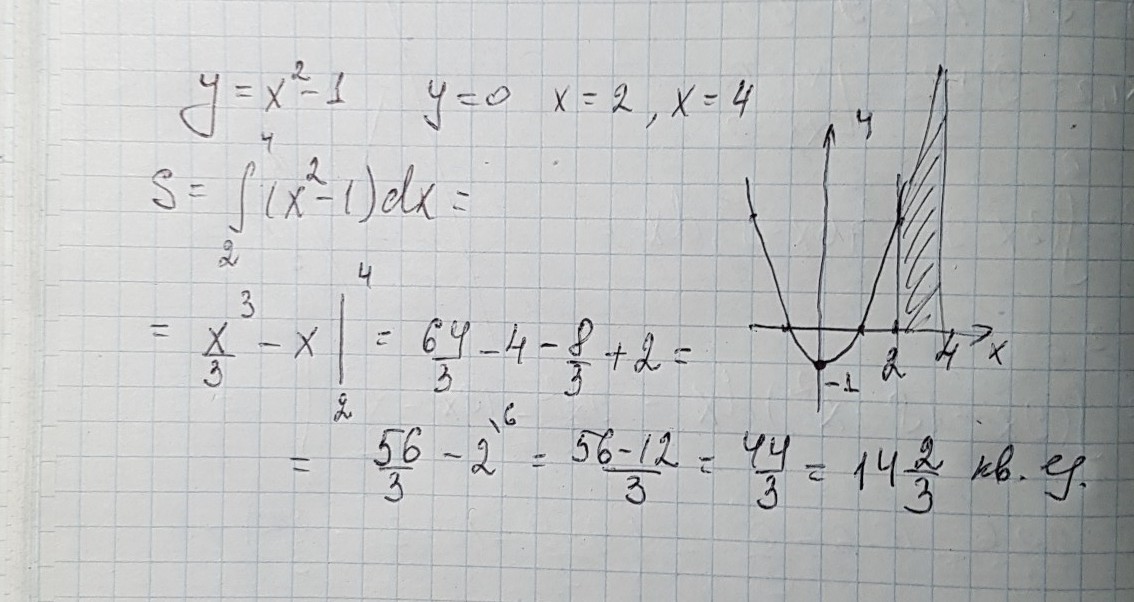 y = x² - 1 y = 0 x = 2, x = 4
S = ∫₂⁴ (x² - 1) dx =
= x³/3 - x |₂⁴ = 64/3 - 4 - 8/3 + 2 =
= 56/3 - 2\⁶ = (56 - 12)/3 = 44/3 = 14 2/3 кв. ед.
y
x
2
4
-1